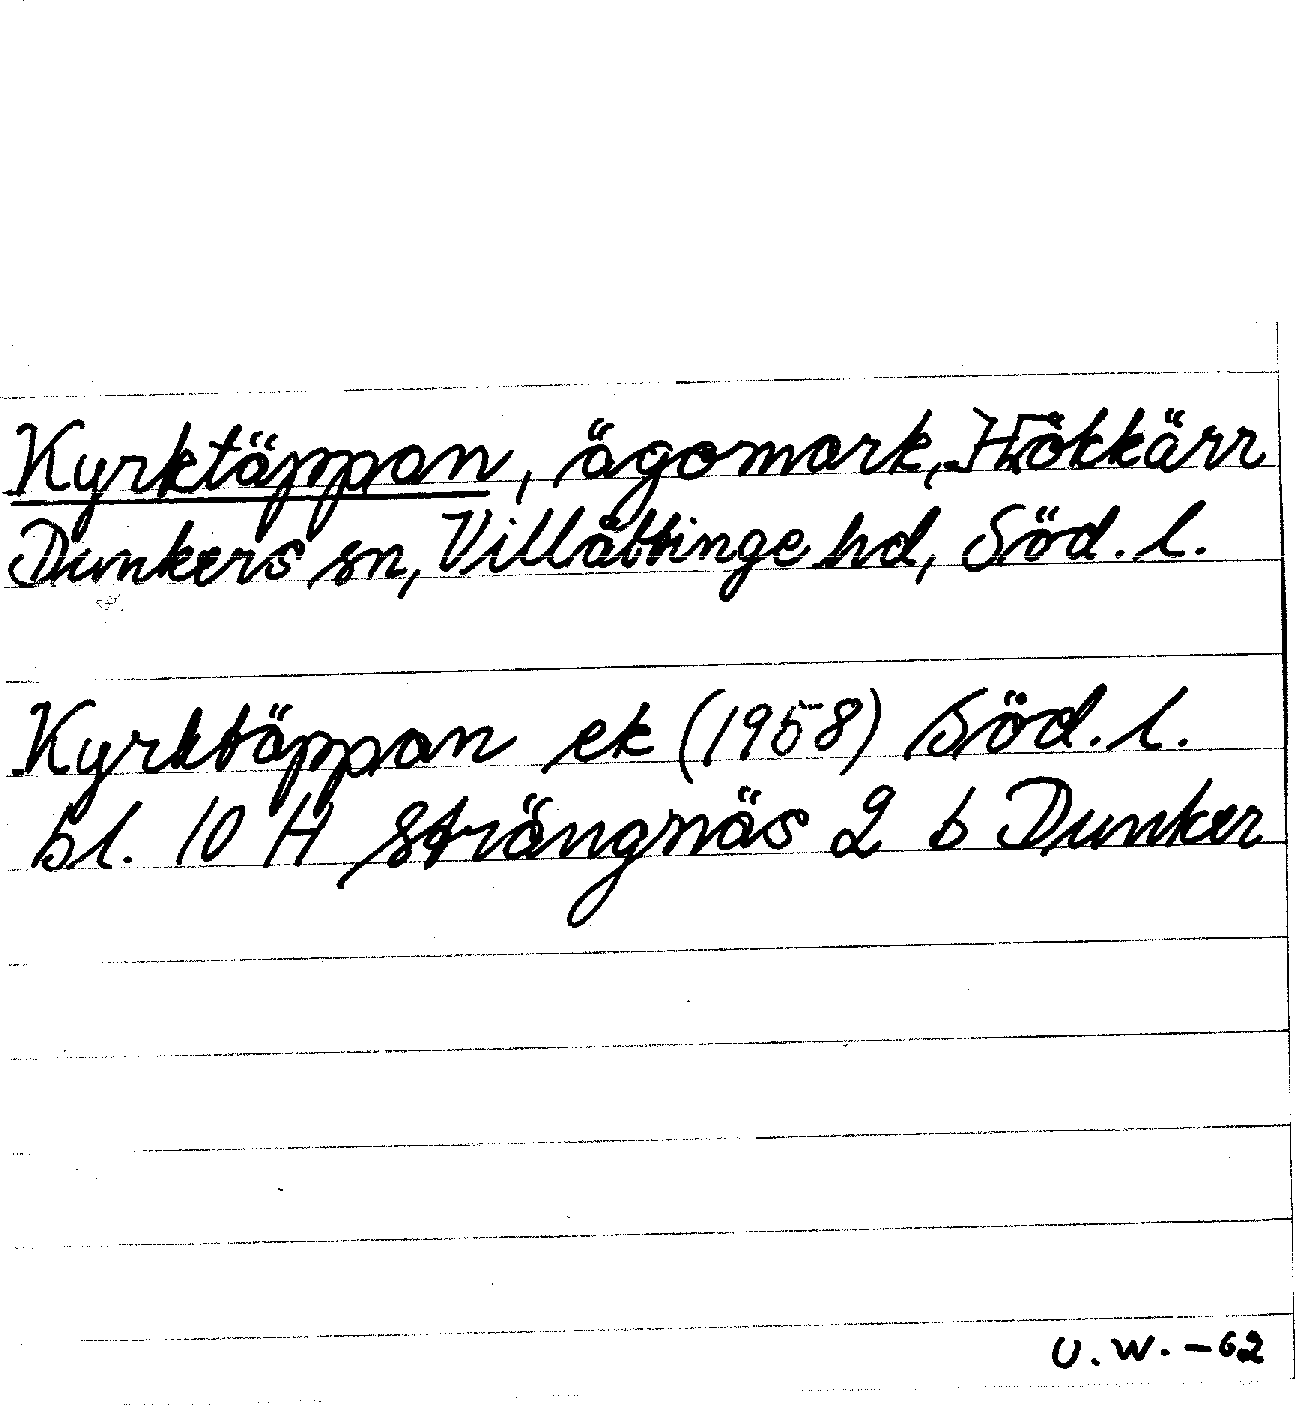 Kyrktäppan, ägomark, Hökkärr
Dunkers sn, Villåttinge hd, Söd. l.
Kyrktäppan ek (1958) Söd. l.
bl. 10 H Strängnäs 2 b Dunker
U.W. -62